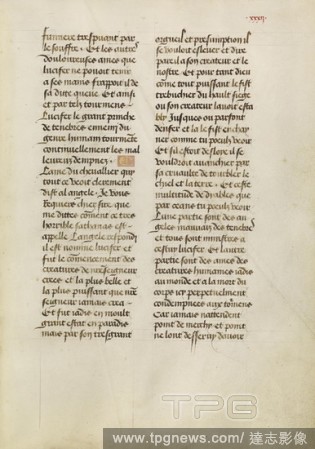 xxxij
par le souffre. Et les autres
douloureuses ames que
lucifer ne povoit tenir
a ses mains frapoit il de
sa dure queue. Et ainsi
et par telz tourmens
Lucifer le grant prince
de tenebres ennemy du
gerre humain tourmente
continuellement les mal
eureux dempnez.
Lame du chevallier qui
tout ce veoit clerement
dist al angele. Je vous
requiers chier sire que
me dittes comment ce tres
horrible sathanas est
appelle. Langele respond
il est nomme lucifer et
fut le commencement des
creatures de nostre seigneur
crees et la plus belle et
la plus puissant que nostre
seigneur iamais crea.
Et fut iadis en moult
grant estat en paradis
mais par son tresgrant
orgueil et presumption il
se vouloit eslever et dire
pareil a son createur et le
nostre. Et pour tant dieu
comme tout puissant le fist
trebucher du hault siege
ou son createur lavoit esta
bly Jusques ou parfont
denfer et la le fist enchay
ner comme tu peulx veoir
Et sil estoit desloye il se
vouldroit avancher par
sa cruaulte de troubler le
ciel et la terre. Et ceste
multitude de dyables que
tu peulx veoir
Lune partie sont des an
geles mauvais des tenebres
et tous sont ministres a
cestuy lucifer. Et lautre
partie sont des ames des
creatures humaines iadis
au monde et a la mort du
corps icy perpetuelment
condempnees aux tourmens
Car iamais nattendent
point de mercy et point
ne lont desservy davoir
TPG
www.tpgnews.com/達志影像